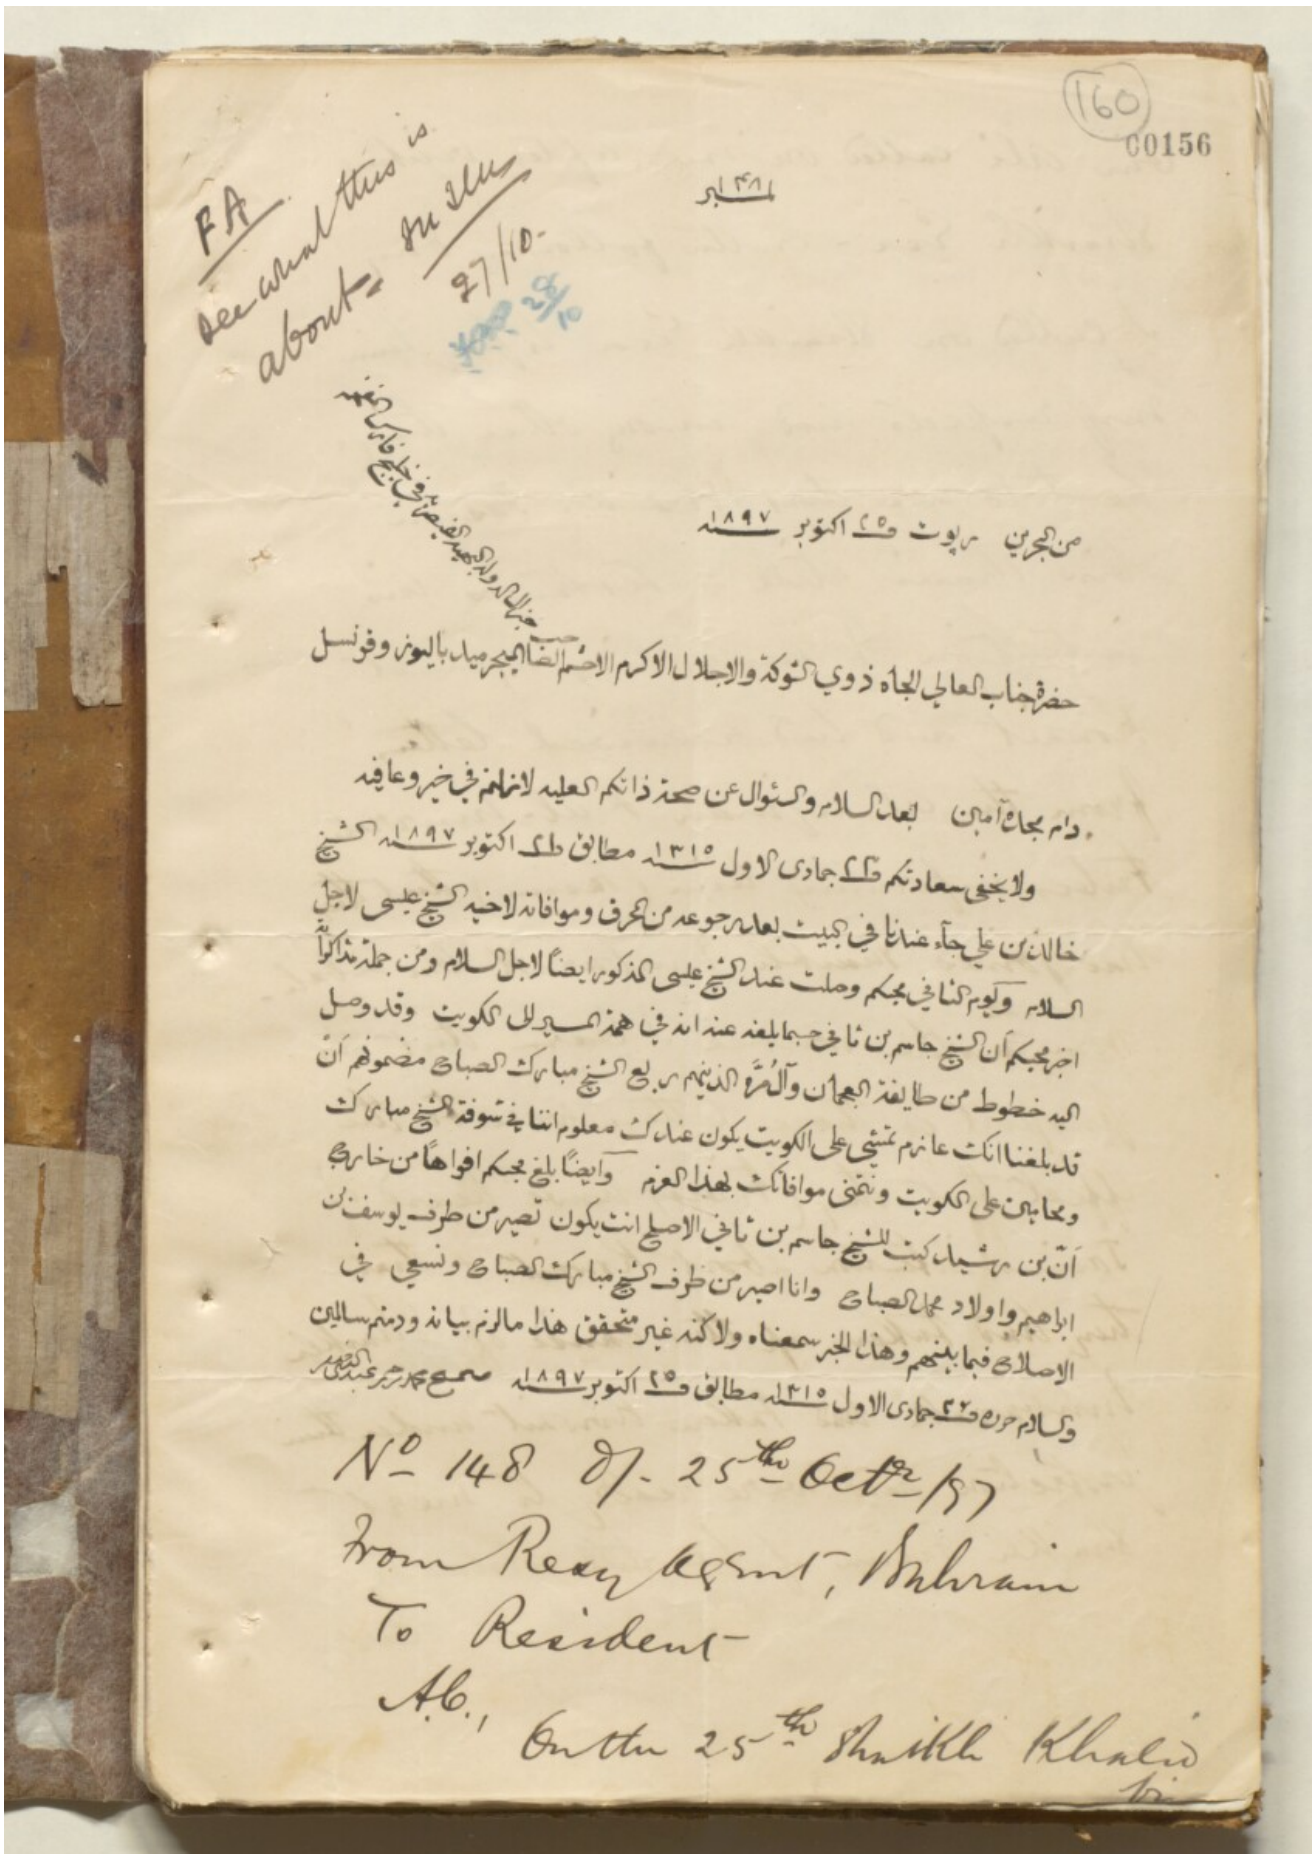 160
00156
نمبر ١٤٨
FA
see what this is
about
27/10.
28/10
من البحرين ربوت في ٢٥ اكتوبر سنة ١٨٩٧
حضرة جناب العالي الجاه ذوي الشوكة والاجلال الاكرم الافخم الصاحب الميجر ميد باليوز وقونسل
جنرال الدولة البهية القيصرية في خليج فارس المفخم
دام مجده آمين بعد السلام والسئوال عن صحة ذاتكم العليه لازلتم في خير وعافيه
ولا يخفى سعادتكم جمادى الاول سنة ١٣١٥ مطابق اكتوبر سنة ١٨٩٧ الشيخ
خالد بن علي جآء عندنا في البيت بعد رجوعه من المحرق وموافاته لاخيه الشيخ عيسى لاجل
السلام وكيوم الثاني محبكم وصلت عند الشيخ عيسى المذكور ايضاً لاجل السلام ومن جملة
اخبر محبكم أن الشيخ جاسم بن ثاني حسبما بلغه عنه انه في همة المسير الى الكويت وقد وصل
اليه خطوط من طايفة العجمان وآل مُرَّه الذينهم ربع الشيخ مبارك الصباح مضمونهم أنّ
قد بلغنا انك عازم تمشي على الكويت يكون عندك معلوم اننا في شوفة الشيخ مبارك
ومحامين على الكويت ونتمنى موافاتك بهذا العزم وأيضاً بلغ محبكم افواهاً من خارج
أنّ بن رشيد كتب للشيخ جاسم بن ثاني الاصلح انت يكون تصير من طرف يوسف بن
ابراهيم واولاد محمد الصباح وانا اصير من طرف الشيخ مبارك الصباح ونسعى في
الاصلاح فيما بينهم وهذا الخبر سمعناه ولاكنه غير متحقق هذا مالزم بيانه ودمتم سالمين
والسلام حرر في جمادى الاول سنة ١٣١٥ مطابق في ٢٥ اكتوبر سنة ١٨٩٧
No 148 d/- 25th Octr /97
From Resy Agent, Bahrain
To Resident
A.C.,
On the 25th Shaikh Khalid
bin